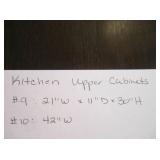 Kitchen Upper Cabinets
#9: 21"W x 11"D x 30"H
#10: 42"W